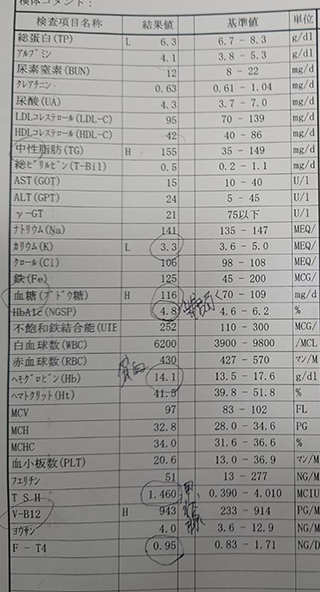 検体コメント：
検査項目名称 結果値 基準値 単位
総蛋白(TP) L 6.3 6.7 - 8.3 g/dl
アルブミン 4.1 3.8 - 5.3 g/dl
尿素窒素(BUN) 12 8 - 22 mg/d
クレアチニン 0.63 0.61 - 1.04 mg/d
尿酸(UA) 4.3 3.7 - 7.0 mg/d
LDLコレステロール(LDL-C) 95 70 - 139 mg/d
HDLコレステロール(HDL-C) 42 40 - 86 mg/d
中性脂肪(TG) H 155 35 - 149 mg/d
総ビリルビン(T-Bil) 0.5 0.2 - 1.1 mg/d
AST(GOT) 15 10 - 40 U/l
ALT(GPT) 24 5 - 45 U/l
γ-GT 21 75以下 U/l
ナトリウム(Na) 141 135 - 147 MEQ/
カリウム(K) L 3.3 3.6 - 5.0 MEQ/
クロール(Cl) 106 98 - 108 MEQ/
鉄(Fe) 125 45 - 200 MCG/
血糖(ブドウ糖) H 116 70 - 109 mg/d
HbA1c(NGSP) 4.8 4.6 - 6.2 %
不飽和鉄結合能(UIB 252 110 - 300 MCG/
白血球数(WBC) 6200 3900 - 9800 /MCL
赤血球数(RBC) 430 427 - 570 マン/M
貧血
ヘモグロビン(Hb) 14.1 13.5 - 17.6 g/dl
ヘマトクリット(Ht) 41.5 39.8 - 51.8 %
MCV 97 83 - 102 FL
MCH 32.8 28.0 - 34.6 PG
MCHC 34.0 31.6 - 36.6 %
血小板数(PLT) 20.6 13.0 - 36.9 マン/M
フェリチン 51 13 - 277 NG/M
TSH 1.460 0.390 - 4.010 MCIU
V-B12 H 943 233 - 914 PG/M
ヨウサン 4.0 3.6 - 12.9 NG/M
F-T4 0.95 0.83 - 1.71 NG/D